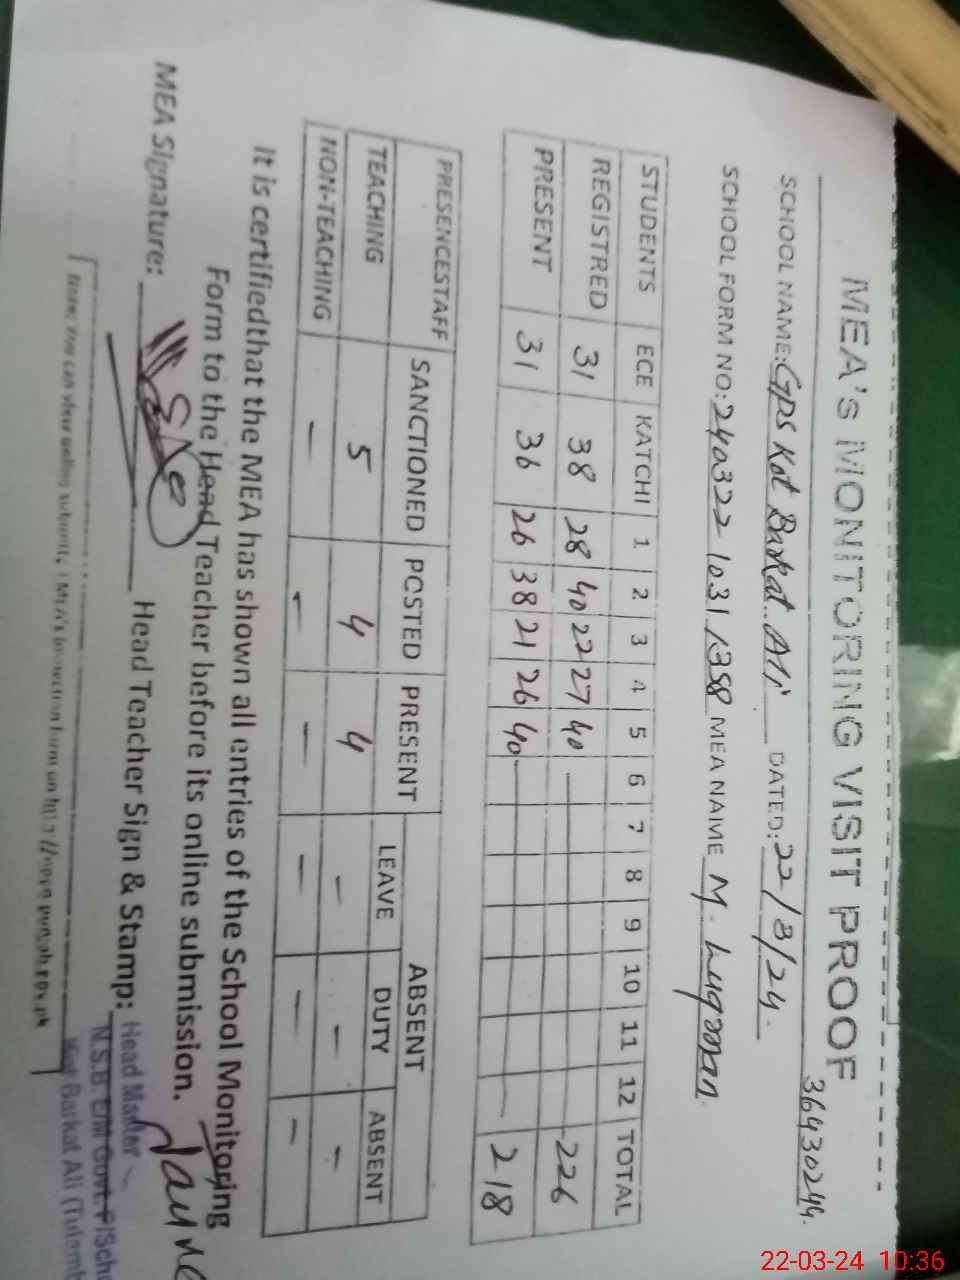 MEA's MONITORING VISIT PROOF
36430244.
SCHOOL NAME: GPS Kot Barkat Ali DATED: 22/3/24.
SCHOOL FORM NO: 240322 1031 1358 MEA NAME M. Luqman
STUDENTS ECE KATCHI 1 2 3 4 5 6 7 8 9 10 11 12 TOTAL
REGISTRED 31 38 28 40 22 27 40 — 226
PRESENT 31 36 26 38 21 26 40 — 218
PRESENCESTAFF SANCTIONED POSTED PRESENT ABSENT
LEAVE DUTY ABSENT
TEACHING 5 4 4 – – –
NON-TEACHING – – – – – –
It is certifiedthat the MEA has shown all entries of the School Monitoring
Form to the Head Teacher before its online submission.
MEA Signature: Head Teacher Sign & Stamp:
Head Master
N.S.B. Govt. P/Scho
Kot Barkat Ali (Tulamb
Note: You can view online
22-03-24 10:36